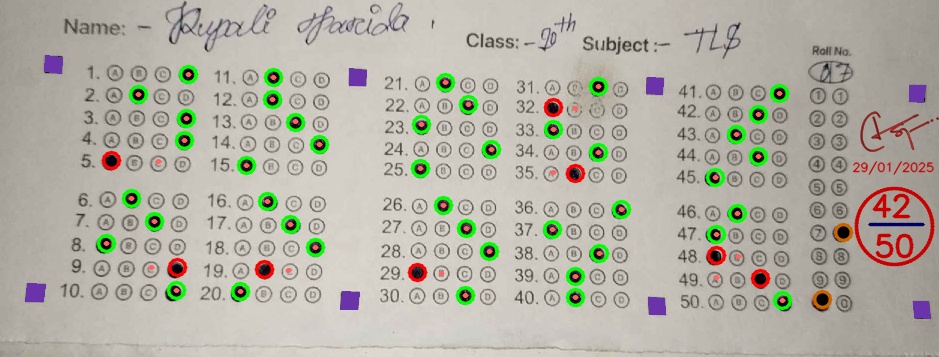 Name: - Rupali
Class: - 10th Subject :- TLS
Roll No.
07
1. A B C
2. A C D
3. A B C
4. A B C
5. B C D
6. A C D
7. A B D
8. B C D
9. A B C
10. A B C
11. A C D
12. A C D
13. A B D
14. A B C
15. B C D
16. A C D
17. A B D
18. A B C
19. A C D
20. B C D
21. A C D
22. A B D
23. B C D
24. A B C
25. B C D
26. A C D
27. A B D
28. A B C
29. B C D
30. A B D
31. A B D
32.
33. B C D
34. A B D
35. A C D
36. A B C
37. B C D
38. A B D
39. A C D
40. A C D
41. A B C
42. A B D
43. A C D
44. A B D
45. B C D
46. A C D
47. B C D
48. B C D
49. A B D
50. A B C
1 1
2 2
3 3
4 4
5 5
6 6
7
8 8
9 9
0
29/01/2025
42
50